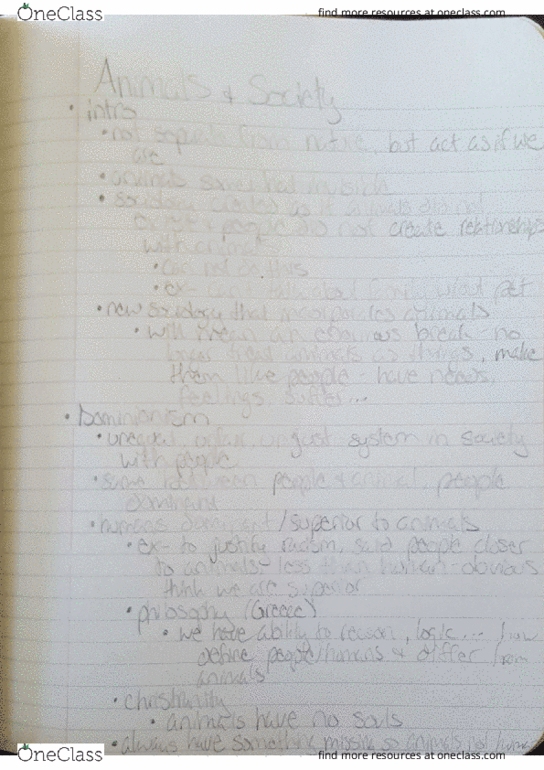 OneClass
find more resources at oneclass.com
Animals & Society
• intro
• not separate from nature, but act as if we
are
• animals somewhat invisible
• sociology created as if animals did not
exist & people did not create relationships
with animals
• can not do this
• ex- can't talk about family w/out pet
• new sociology that incorporates animals
• will mean an enormous break - no
longer treat animals as things, make
them like people - have needs,
feelings, suffer...
• Dominionism
• unequal, unfair, unjust system in society
with people
• same between people & animal, people
dominant
• humans dominant/superior to animals
• ex- to justify racism, said people closer
to animals- less than human- obvious
think we are superior
• philosophy (Greece)
• we have ability to reason, logic... / how
define people/humans & differ from
animals
• christianity
• animals have no souls
• always have something missing so animals not human
OneClass
find more resources at oneclass.com